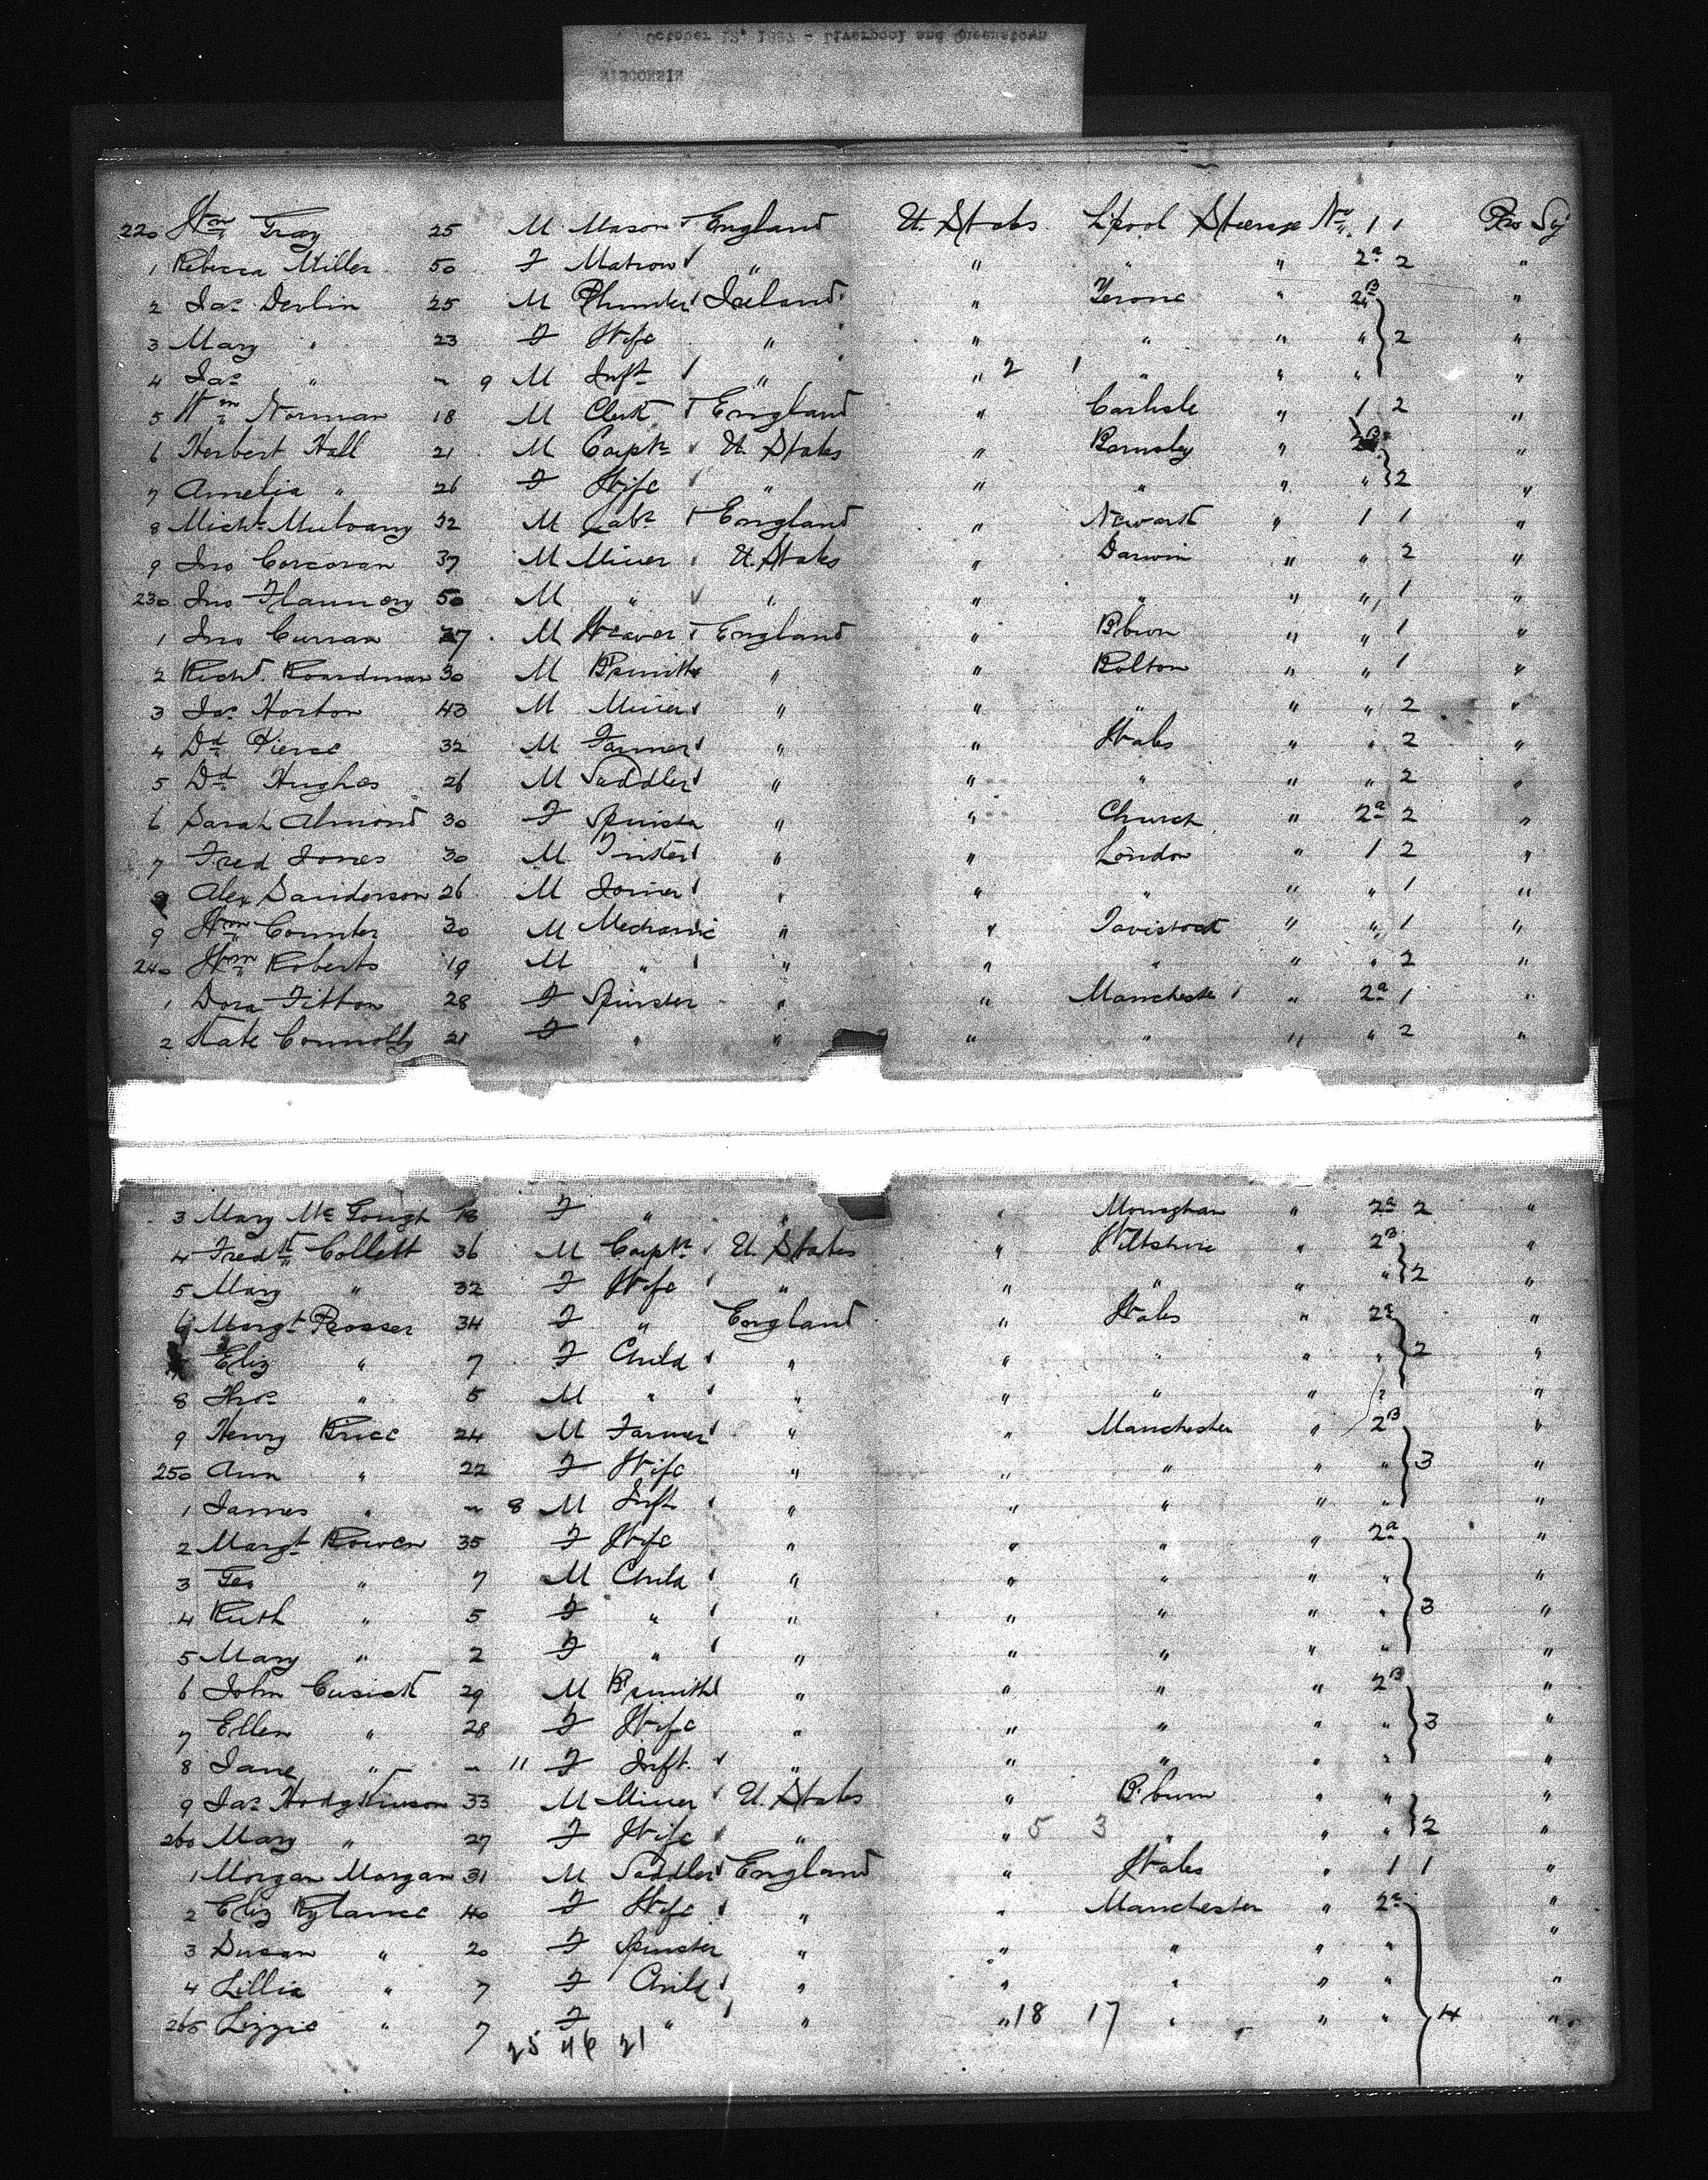 October 12, 1887 - Liverpool and Queenstown
WISCONSIN
220 Wm Gray 25 M Mason England U. States Lpool Steerage No. 1 1 Pro Sj
1 Rebecca Miller 50 F Matron " " " " 2a 2 "
2 Jas Devlin 25 M Plumber Ireland " Tyrone " 2B "
3 Mary " 23 F Wife " " " " " 2 "
4 Jas " 9 M Inft " " 2 1 " " " "
5 Wm Norman 18 M Clerk England " Carlisle " 1 2 "
6 Herbert Hall 21 M Carptr U. States " Barnsley " 2B "
7 Amelia " 26 F Wife " " " " " 2 "
8 Michl Mulvany 32 M Labr England " Newark " 1 1 "
9 Jno Corcoran 37 M Miner U. States " Darwin " " 2 "
230 Jno Flannery 50 M " " " " " " 1 "
1 Jno Curran 27 M Weaver England " Bburn " " 1 "
2 Richd Boardman 30 M Bsmith " " Bolton " " 1 "
3 Jas Horton 43 M Miner " " " " " 2 "
4 Dd Pierce 32 M Farmer " " Wales " " 2 "
5 Dd Hughes 26 M Saddler " " " " " 2 "
6 Sarah Almond 30 F Spinstr " " Church " 2a 2 "
7 Fred Jones 30 M " " London " 1 2 "
8 Alex Sanderson 26 M Joiner " " " " " 1 "
9 Wm Counter 20 M Mechanic " " Tavistock " " 1 "
240 Wm Roberts 19 M " " " " " " 2 "
1 Dora Fitton 28 F Spinster " " Manchester " 2a 1 "
2 Kate Connolly 21 F " " " " " " 2 "
3 Mary Mc Gough 18 F " " " Monaghan " 2a 2 "
4 Fredk Collett 36 M Carptr U. States " Wiltshire " 2B "
5 Mary " 32 F Wife " " " " " 2 "
6 Margt Prosser 34 F " England " Wales " 2a "
7 Eliz " 7 F Child " " " " " 2 "
8 Thos " 5 M " " " " " " "
9 Henry Price 24 M Farmer " " Manchester " 2B "
250 Ann " 22 F Wife " " " " " 3 "
1 James " 8 M Inft " " " " " "
2 Margt Bowen 35 F Wife " " " " 2a "
3 Geo " 7 M Child " " " " " "
4 Ruth " 5 F " " " " " " 3 "
5 Mary " 2 F " " " " " " "
6 John Cusick 29 M Bsmith " " " " 2B "
7 Ellen " 28 F Wife " " " " " 3 "
8 Jane " 11 F Inft " " " " " "
9 Jas Hodgkinson 33 M Miner U. States " Bburn " " "
260 Mary " 27 F Wife " " 5 3 " " " 2 "
1 Morgan Morgan 31 M Saddler England " Wales " 1 1 "
2 Eliz Rylance 40 F Wife " " Manchester " 2a "
3 Susan " 20 F Spinster " " " " " "
4 Lillie " 7 F Child " " " " " "
265 Lizzie " 7 F " " " 18 17 " " " 4 "
25 46 21